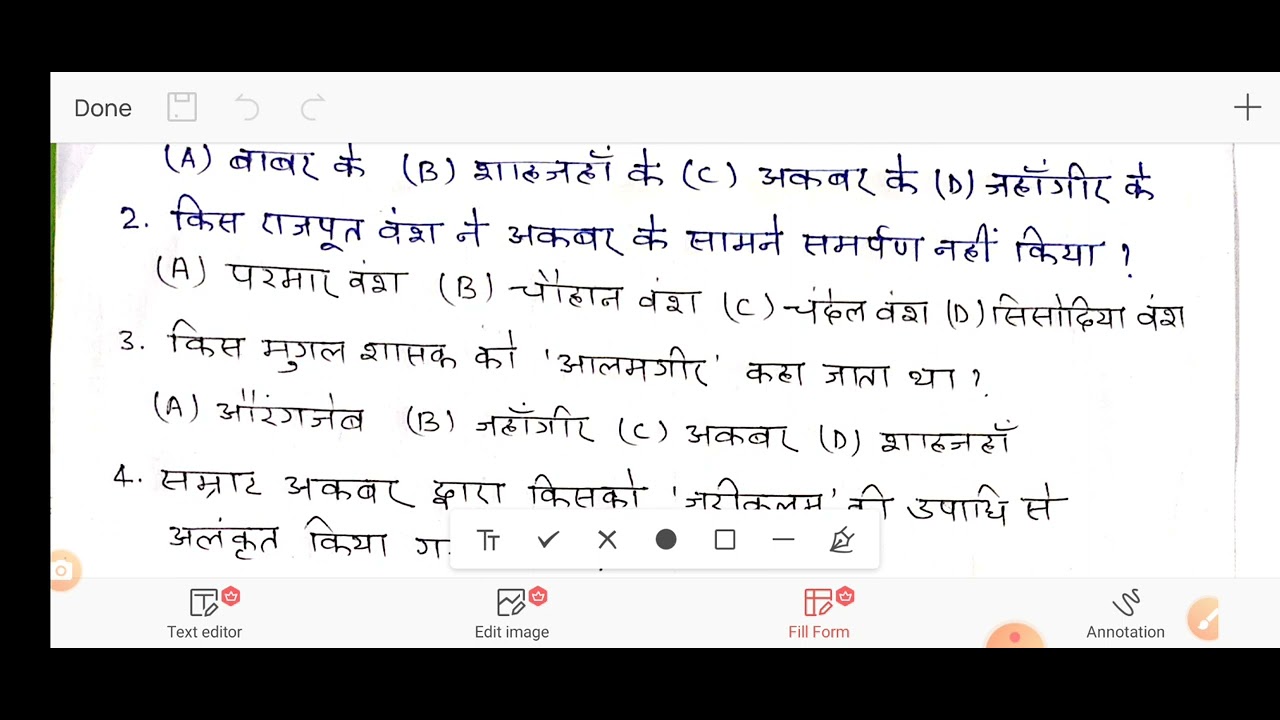 Done
(A) बाबर के (B) शाहजहाँ के (C) अकबर के (D) जहाँगीर के
2. किस राजपूत वंश ने अकबर के सामने समर्पण नहीं किया ?
(A) परमार वंश (B) चौहान वंश (C) चंदेल वंश (D) सिसोदिया वंश
3. किस मुगल शासक को 'आलमगीर' कहा जाता था ?
(A) औरंगजेब (B) जहाँगीर (C) अकबर (D) शाहजहाँ
4. सम्राट अकबर द्वारा किसको 'जरीकलम' की उपाधि से
अलंकृत किया
Text editor Edit image Fill Form Annotation